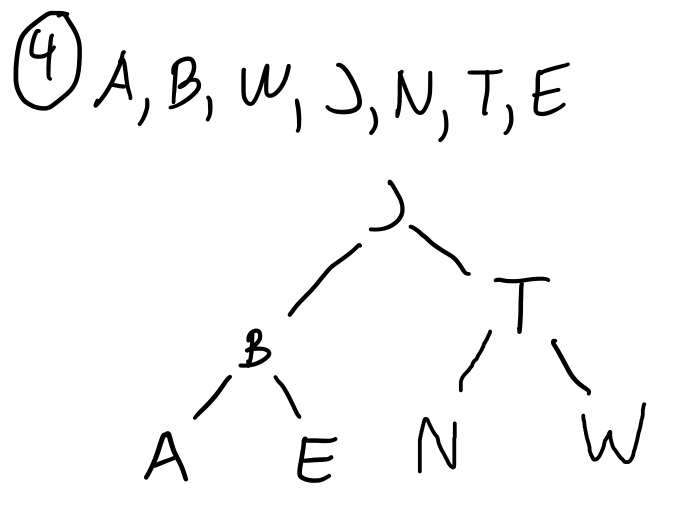 ④ A, B, W, J, N, T, E
J
T
B
A E N W